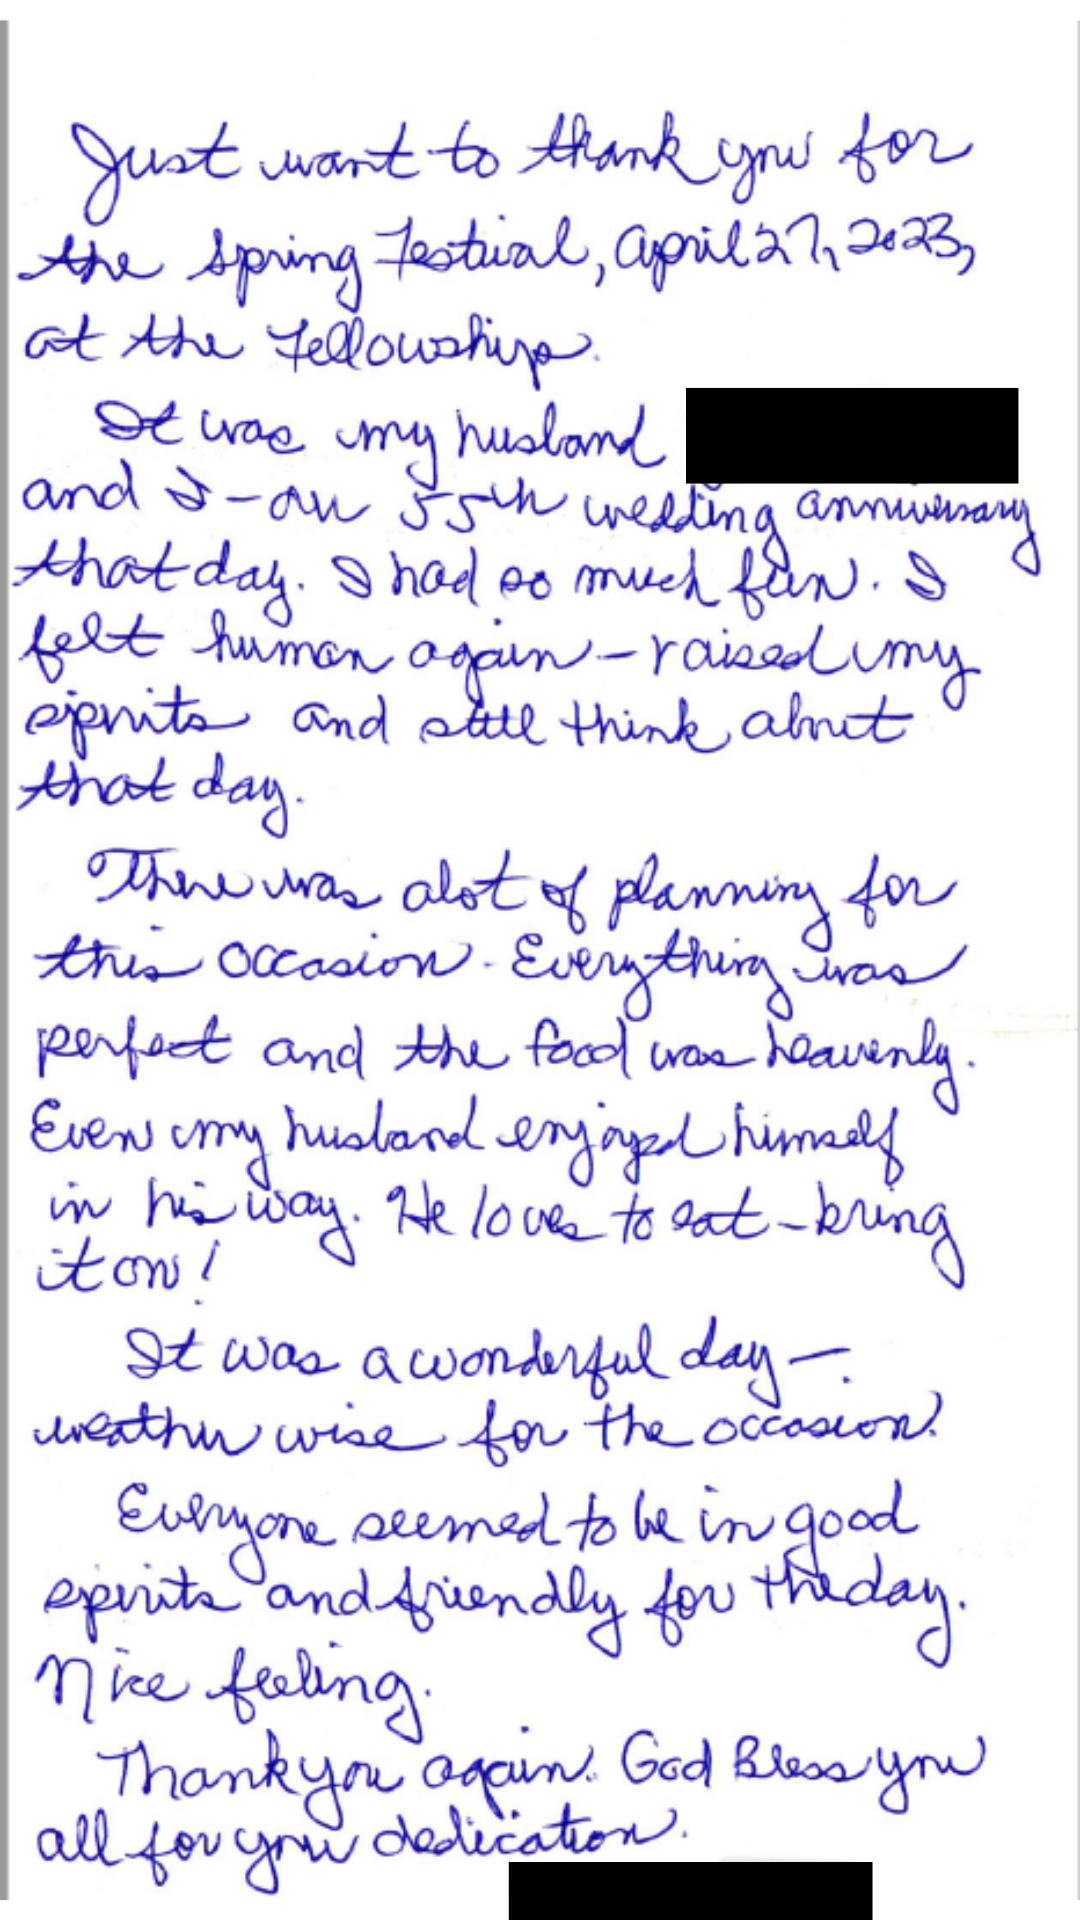 Just want to thank you for
the Spring Festival, April 27, 2023,
at the Fellowship.
It was my husband
and I - our 55th wedding anniversary
that day. I had so much fun. I
felt human again - raised my
spirits and still think about
that day.
There was alot of planning for
this occasion. Everything was
perfect and the food was heavenly.
Even my husband enjoyed himself
in his way. He loves to eat - bring
it on!
It was a wonderful day -
weather wise for the occasion!
Everyone seemed to be in good
spirits and friendly for the day.
Nice feeling.
Thank you again! God Bless you
all for your dedication.